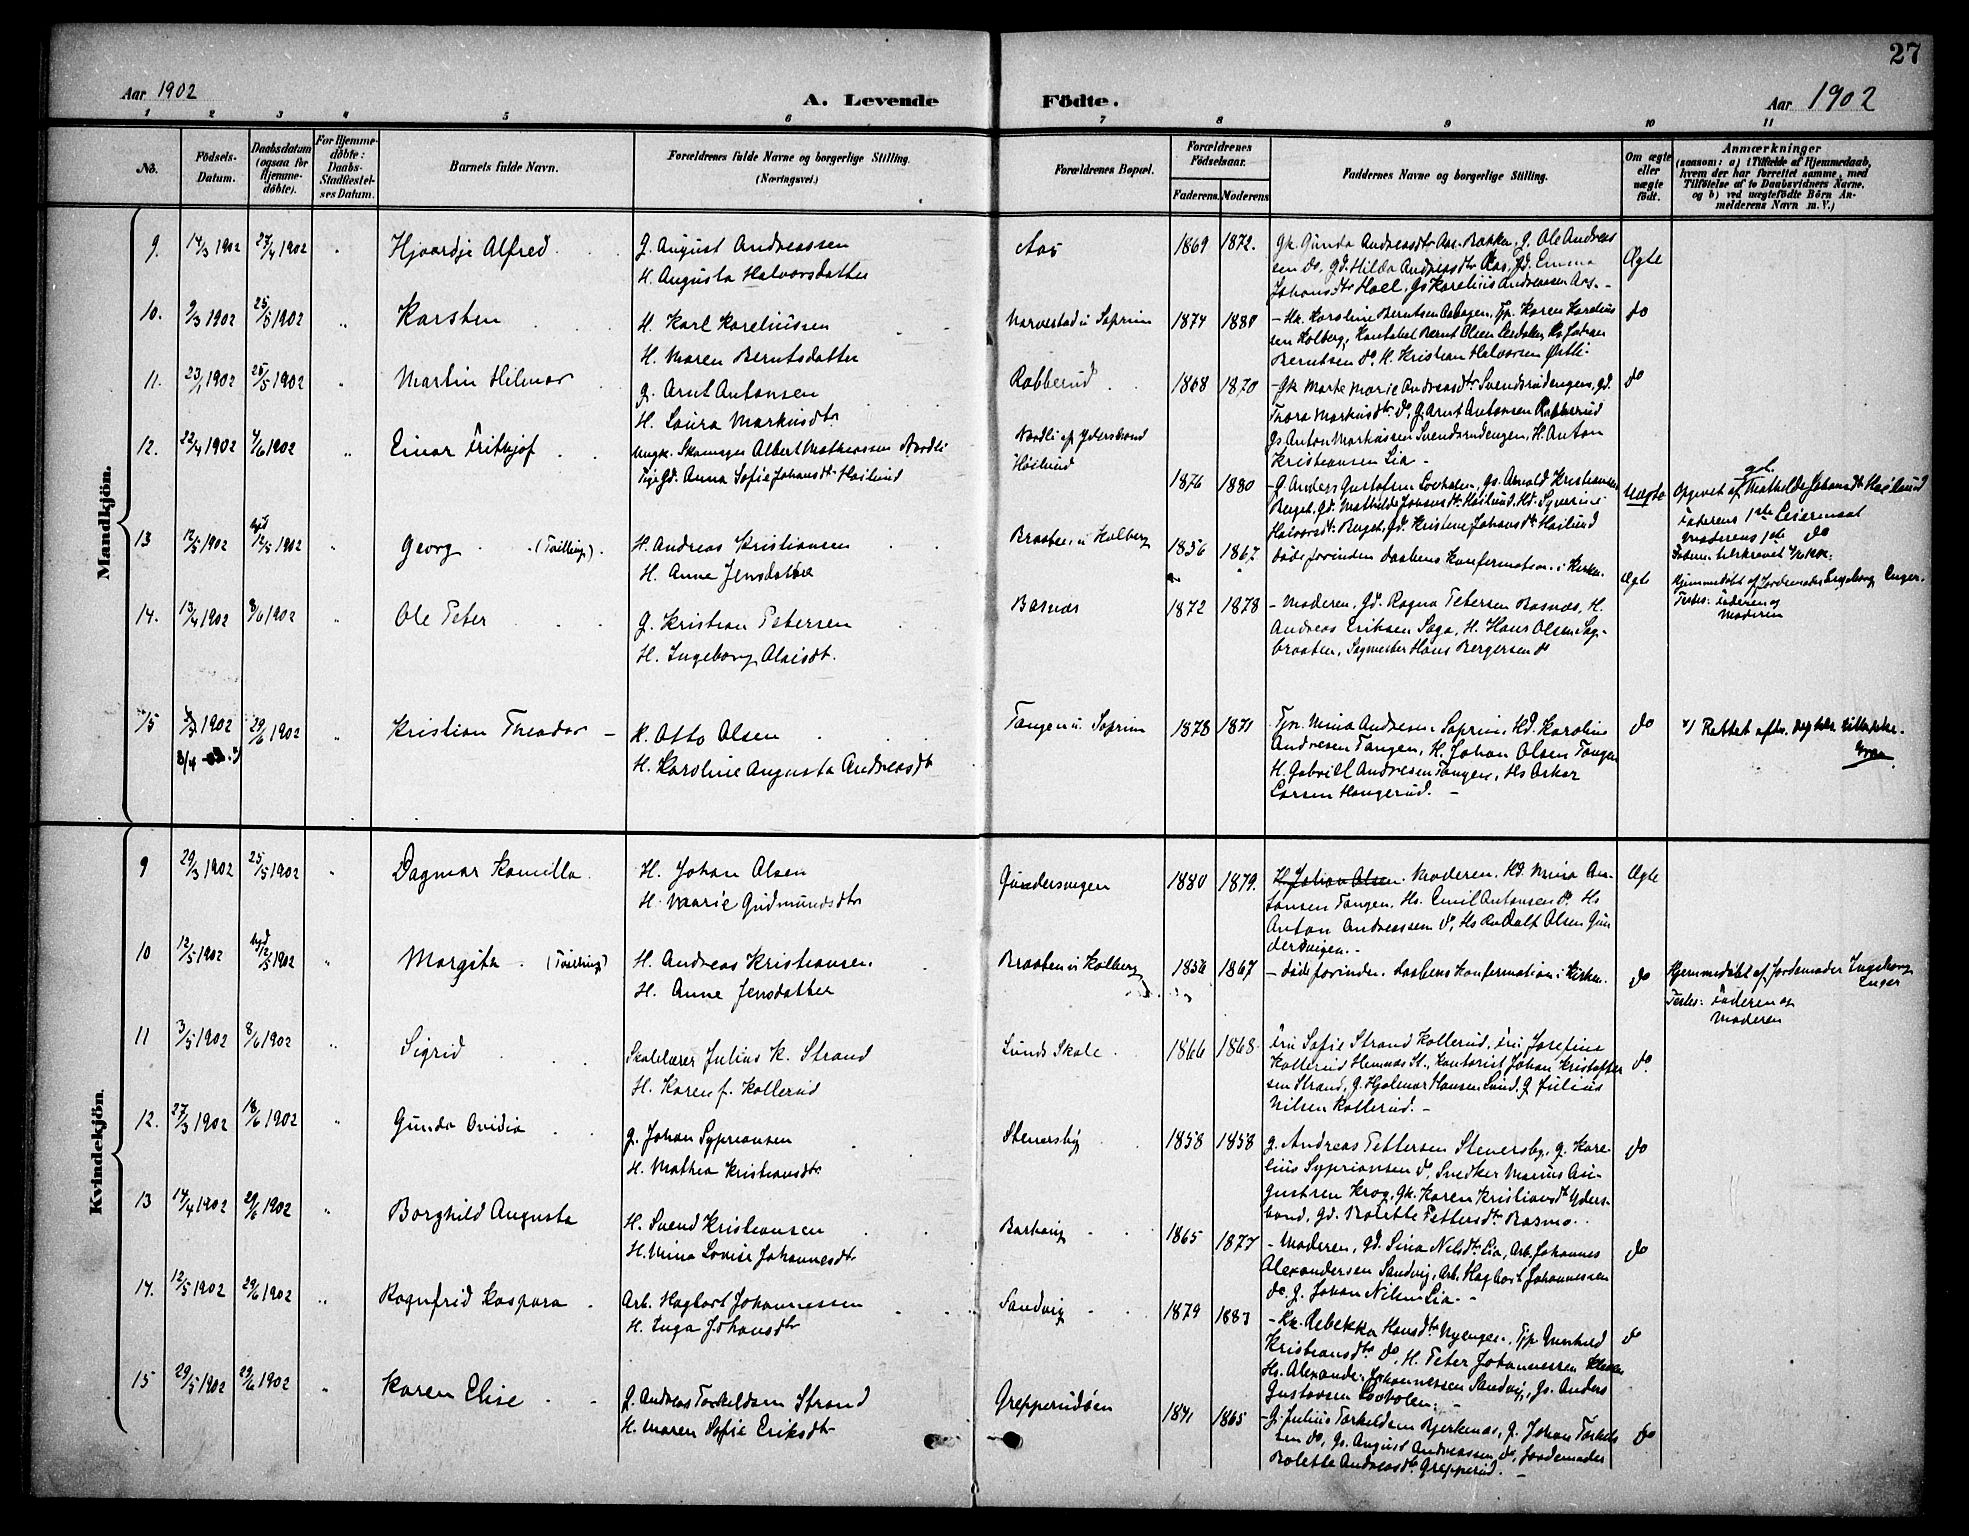 27
Aar 1902
A. Levende Födte.
Aar 1902
1 2 3 4 5 6 7 8 9 10 11
No.
Födsels-Datum.
Daabsdatum (ogsaa for Hjemmedöbte).
For Hjemmedöbte: Daabs-Stadfæstelses Datum.
Barnets fulde Navn.
Forældrenes fulde Navne og borgerlige Stilling.
(Næringsvei.)
Forældrenes Bopæl.
Forældrenes Födselsaar.
Faderens. Moderens.
Faddernes Navne og borgerlige Stilling.
Om ægte eller uægte födt.
Anmærkninger
(saasom: a) i Tilfælde af Hjemmedaab, hvem der har forrettet samme, med Tilföielse af to Daabsvidners Navne, og b) ved uægtefödte Börn Anmelderens Navn m. V.)
Mandkjön.
9. 14/3 1902 27/4 1902 " Hjvardje Alfred
G. August Andreassen
H. Augusta Halvorsdatter
Aas 1869 1872.
Gk. Gunda Andreasdtr Aas. Bakke, G. Ole Andreas
sen do, Gd. Hilda Andreasdtr Aas, Gd. Emma
Johansdtr Hoel, Gs Karelius Andreassen Aas. -
Ægte
10. 9/3 1902 25/5 1902 " Karsten
H. Karl Kareliussen
H. Maren Berntsdatter
Narvestad u Soprim 1874 1880
do
Berntsen do, H. Kristian Halvorsen Østli.
11. 23/1 1902 25/5 1902 " Martin Hilmar
G. Arnt Antonsen
H. Laura Markusdtr
Rabberud 1868 1870
- Gk Marte Marie Andreasdtr Svendsrudengen, Gd.
Thora Markusdtr do, G. Arnt Antonsen Rabberud
Gs Anton Markussen Svendsrudengen, H. Anton
Kristiansen Lia -
do
12. 22/4 1902 4/6 1902 " Einar Frithjof
Ungk. Skomager Albert Mathiassen Nordli
Pige Gd. Anna Sofie Johansdtr Høilund
Nordli af Ydersbond
Høilund
1876 1880
- G. Anders Gustafsen Lovholen, Gs. Arnold Kristiansen
Berget, Gd. Mathilde Johansdtr Høilund, Hd. Syverine
Halvorsdtr Berget, Gd. Kristine Johansdtr Høilund
Uægte
Opgivet af Gd. Mathilde Johansdtr Høilund
Faderens 1ste Leiermaal
Moderens 1ste do
13 12/5 1902 12/5 1902 Georg (Tvilling)
H. Andreas Kristiansen
H. Anne Jensdatter
Braaten u Kolberg 1856 1867
døde forinden daabens Konfirmation i Kirken.
Ægte
Hjemmedøbt af Jordemoder Ingeborg Enger.
Testes: Faderen og
Moderen
14. 13/4 1902 8/6 1902 " Ole Peter
G. Kristian Petersen
H. Ingeborg Olaisdtr.
Basnæs 1872 1878
- Moderen, Gd. Ragna Petersen Basnæs, H.
Andreas Eriksen Saga, H. Hans Olsen Sag-
braaten, Sagmester Hans Bergersen do
15 1902 29/6 1902 " Kristian Theodor -
8/4
H. Otto Olsen
H. Karoline Augusta Andreasdtr
Tangen u. Soprim 1878 1871
Tj. Mina Andresen Soprim, Hd. Karoline
Andresen Tangen, H. Johan Olsen Tangen
H. Gabriel Andresen Tangen, Hs Oskar
Larsen Haugerud. -
do
Kvindekjön.
9 29/3 1902 25/5 1902 " Dagmar Kamilla.
H. Johan Olsen
H. Marie Gudmundsdtr
Gundersvigen 1880 1879.
H. Johan Olsen. Moderen. Hd. Mina An-
tonsen Tangen, Hs. Emil Antonsen do, Hs
Anton Andreassen do, Hs Rudolf Olsen Gun
dersvigen. -
Ægte
10 12/5 1902 12/5 1902 " Margite (Tvilling)
H. Andreas Kristiansen.
H. Anne Jensdatter
Braaten u Kolberg 1856 1867
- døde forinden daabens Konfirmation i Kirken.
do
Hjemmedøbt af Jordemoder Ingeborg
Enger
Testes: Faderen og
Moderen
11 3/5 1902 8/6 1902 " Sigrid
Skolelærer Julius K. Strand
H. Karen f. Kollerud
Lunds Skole 1866 1868
Fru Sofie Strand Kollerud, Fru Josefine
Kollerud Hemnæs St., Kontorist Johan Kristoffer
sen Strand, G. Hjalmar Hansen Lund, G Julius
Nilsen Kollerud. -
do.
12. 27/3 1902 18/6 1902 " Gunda Ovidia
G. Johan Syprionsen
H. Mathea Kristiansdtr
Stenersby 1858 1858
G. Andreas Pettersen Stenersby, G. Kare-
lius Syprionsen do, Snedker Marius Au-
gustsen Krog, Gk. Karen Kristiansdtr Yders-
bond, Gd. Bolette Pettersdtr Basnæs.
do
13 14/4 1902 29/6 1902 " Borghild Augusta
H. Svend Kristiansen
H. Mina Lovise Johannesdtr
1865 1877
- Moderen, Gd. Sina Nilsdtr Lia, Arb. Johannes
Alexandersen Sandvig, Arb. Hagbart Johannessen
do, G. Johan Nilsen Lia. -
do
14. 12/5 1902 29/6 1902 " Ragnfrid Kaspara
Arb. Hagbart Johannessen
H. Inga Johansdtr
Sandvig 1879 1883
- Kr. Rebekka Hansdtr Nyengen,
Kristiansdtr do, H. Peter Johannessen
Hs. Alexander Johannessen Sandvig, Gs. Anders
Gustavsen Lovholen. -
do
15 29/5 1902 29/6 1902 " Karen Elise
G. Andreas Torkeldsen Strand
H. Maren Sofie Eriksdtr
Grepperudsen 1871 1865
- G. Julius Torkeldsen Bjerkenæs, G. Johan Torkeld
sen do, Gs. August Andreassen do, Jordemoder
Bolette Andreasdtr Grepperud. -
do